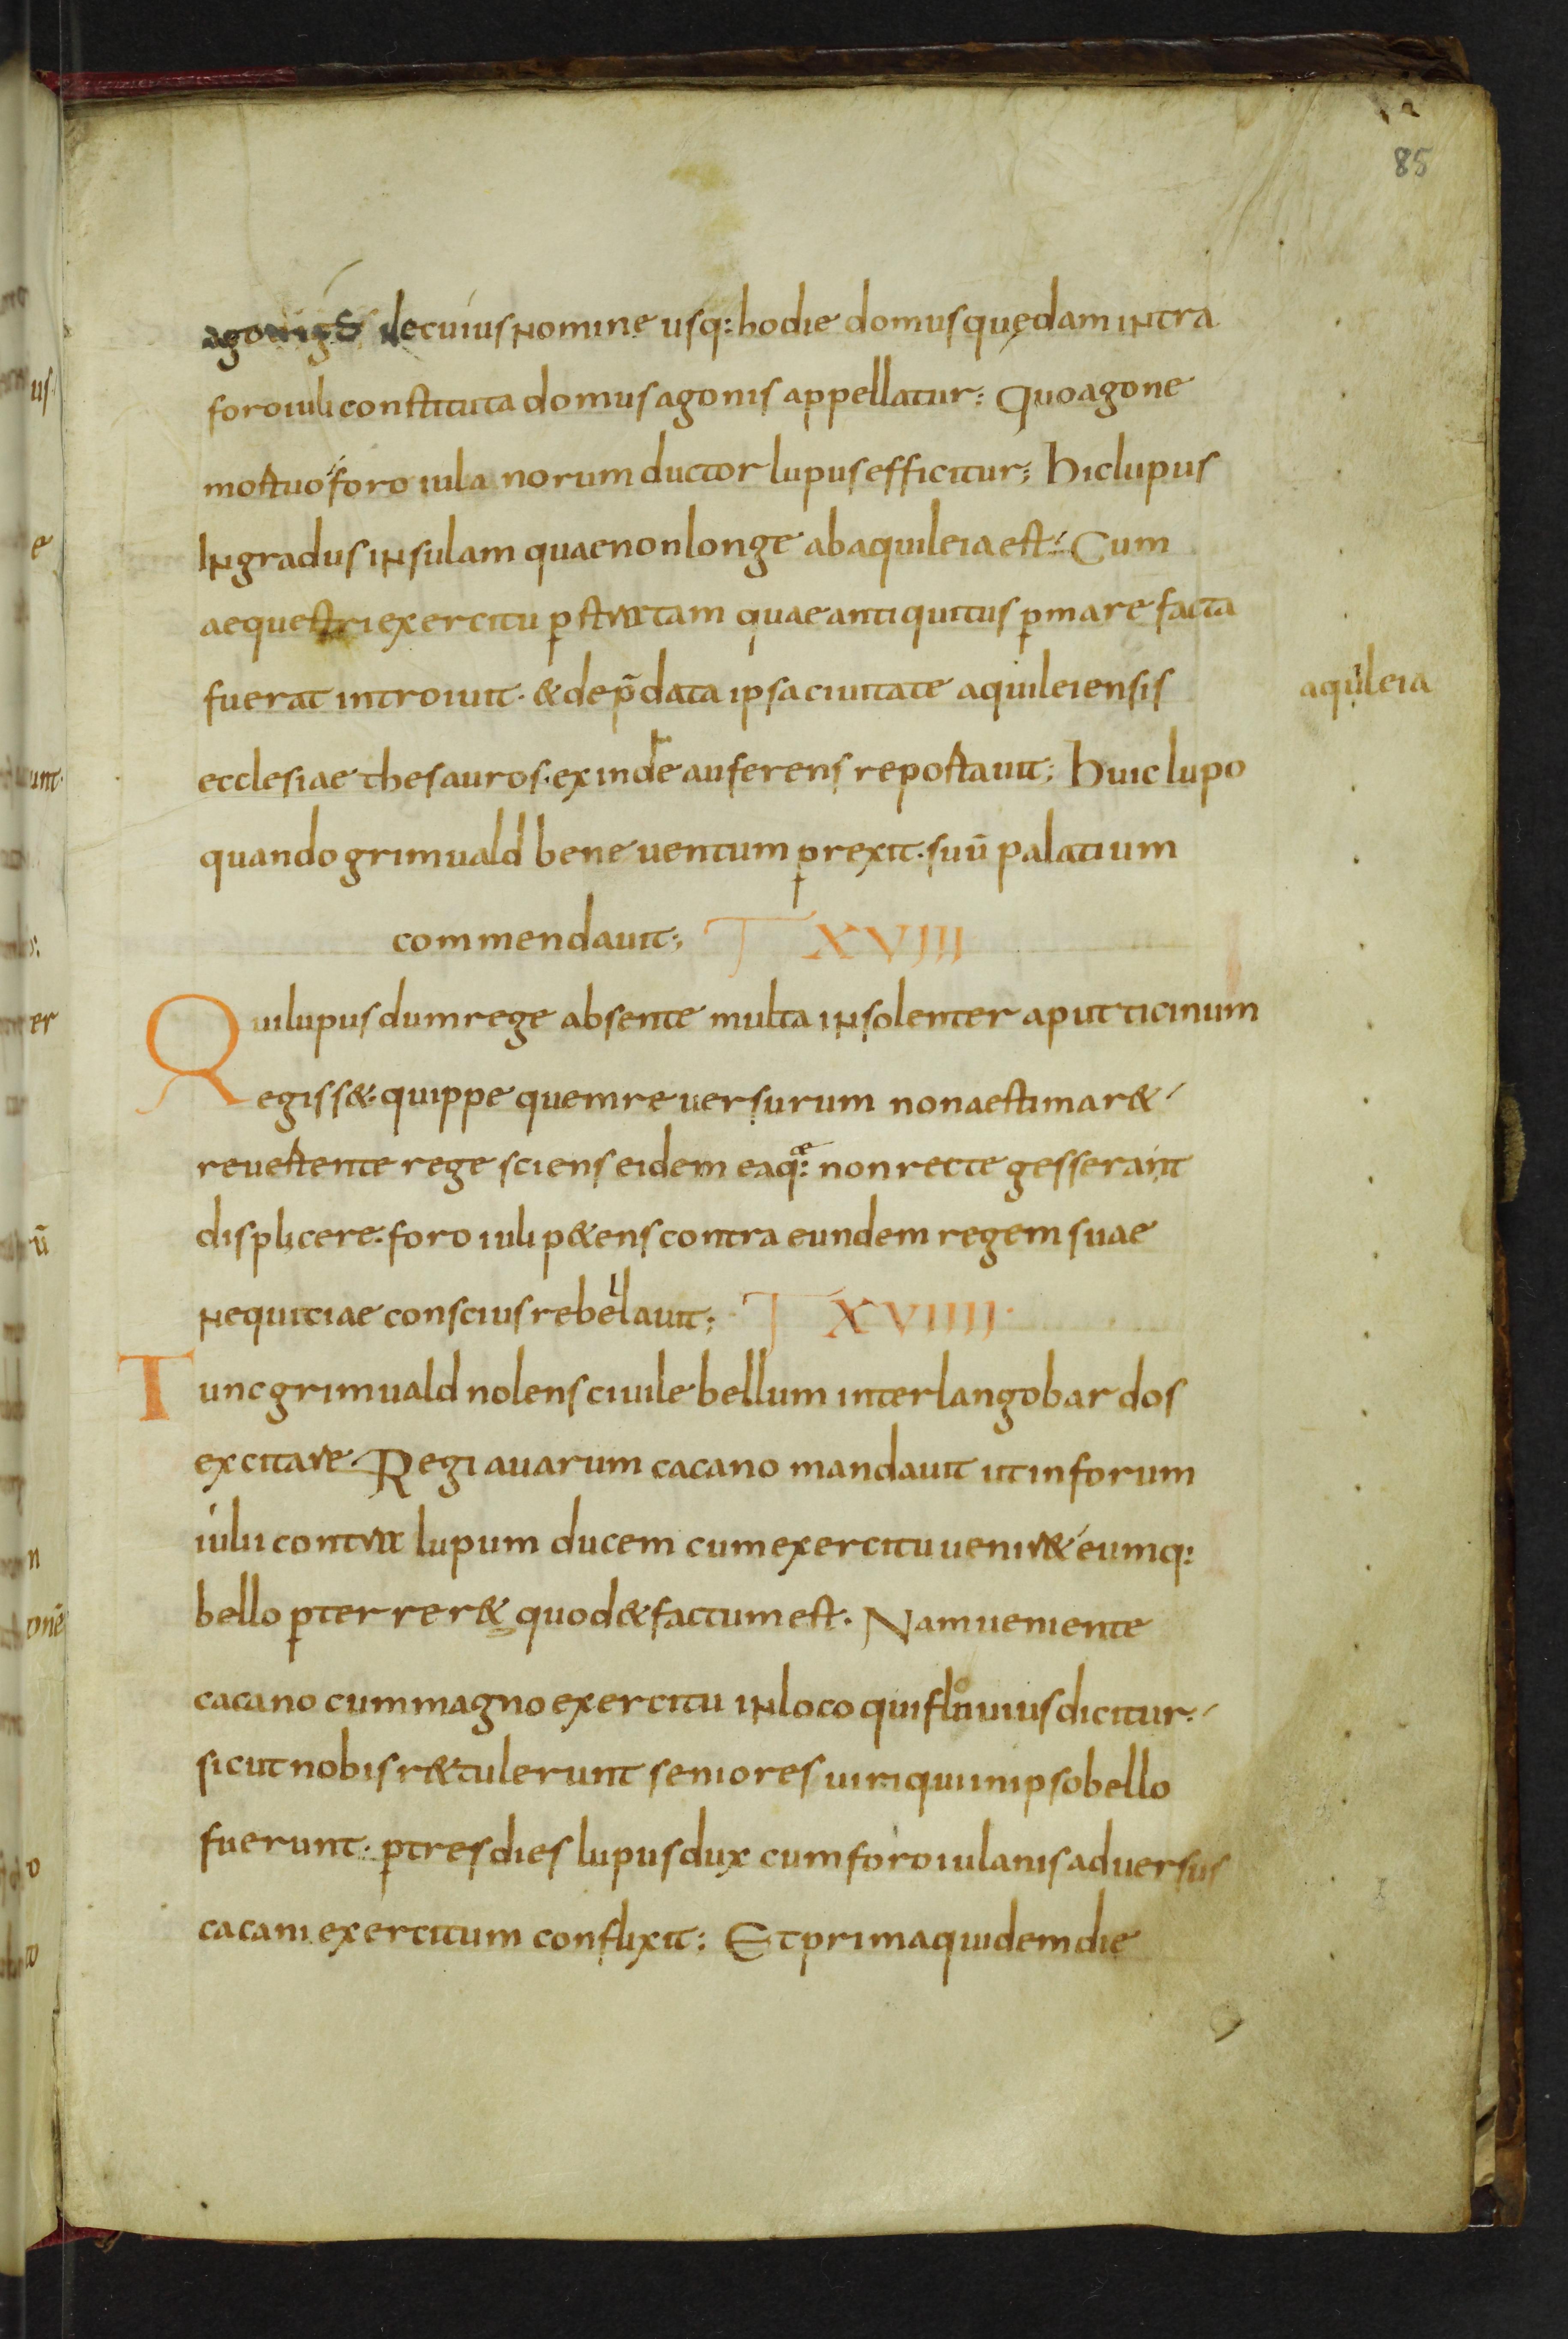 85
agonis de cuius nomine usq: hodie domus quędam intra
foroiuli constituta domus agonis appellatur: Quo agone
mortuo foroiulanorum ductor lupus efficitur; Hic lupus
In gradus insulam quae non longe ab aquileia est. Cum
aequestri exercitu p̱ stratam quae antiquitus p̱ mare facta
fuerat introiuit. & dep̄data ipsa ciuitate aquileiensis
aquileia
ecclesiae thesauros. exinde auferens reportauit; Huic lupo
quando grimuald beneuentum p̱rexit. suū palatium
commendauit; T XVIII
Qui lupus dum rege absente multa insolenter aput ticinum
egiss&. quippe quem reuersurum non aestimar&
reuertente rege sciens eidem ea q:ę non recte gesserant
displicere. foroiuli p&ens contra eundem regem suae
nequitiae conscius rebellauit; T XVIIII.
Tunc grimuald nolens ciuile bellum inter langobardos
excitare. Regi auarum cacano mandauit ut in forum
iulii contra lupum ducem cum exercitu uenir& eumq:
bello p̱terrer& quod & factum est. Nam ueniente
cacano cum magno exercitu in loco qui fluuius dicitur.
sicut nobis r&tulerunt seniores uiri qui in ipso bello
fuerunt. p̱ tres dies lupus dux cum foroiulanis aduersus
cacani exercitum conflixit; Et prima quidem die